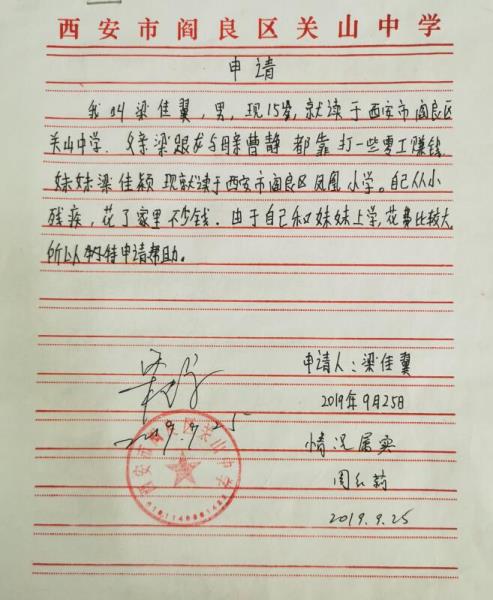 西安市阎良区关山中学
申请
我叫梁佳翼，男，现15岁，就读于西安市阎良区
关山中学．父亲梁跟龙与母亲曹静 都靠打一些零工赚钱
妹妹梁佳颖 现就读于西安市阎良区凤凰小学。自己从小
残疾，花了家里不少钱．由于自己和妹妹上学，花费比较大
所以特申请帮助。
申请人：梁佳翼
2019年9月25日
2019.9.25
情况属实
周红莉
西安市阎良区关山中学
2019.9.25